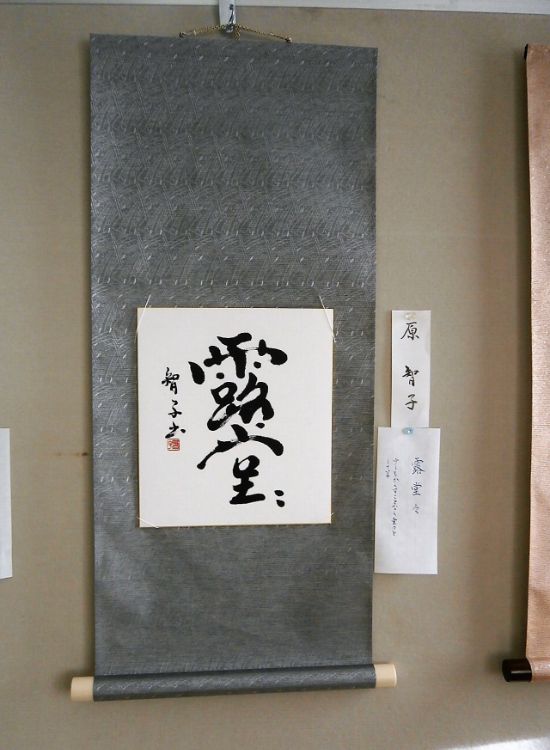 露堂々
智子書
原 智子
露堂々